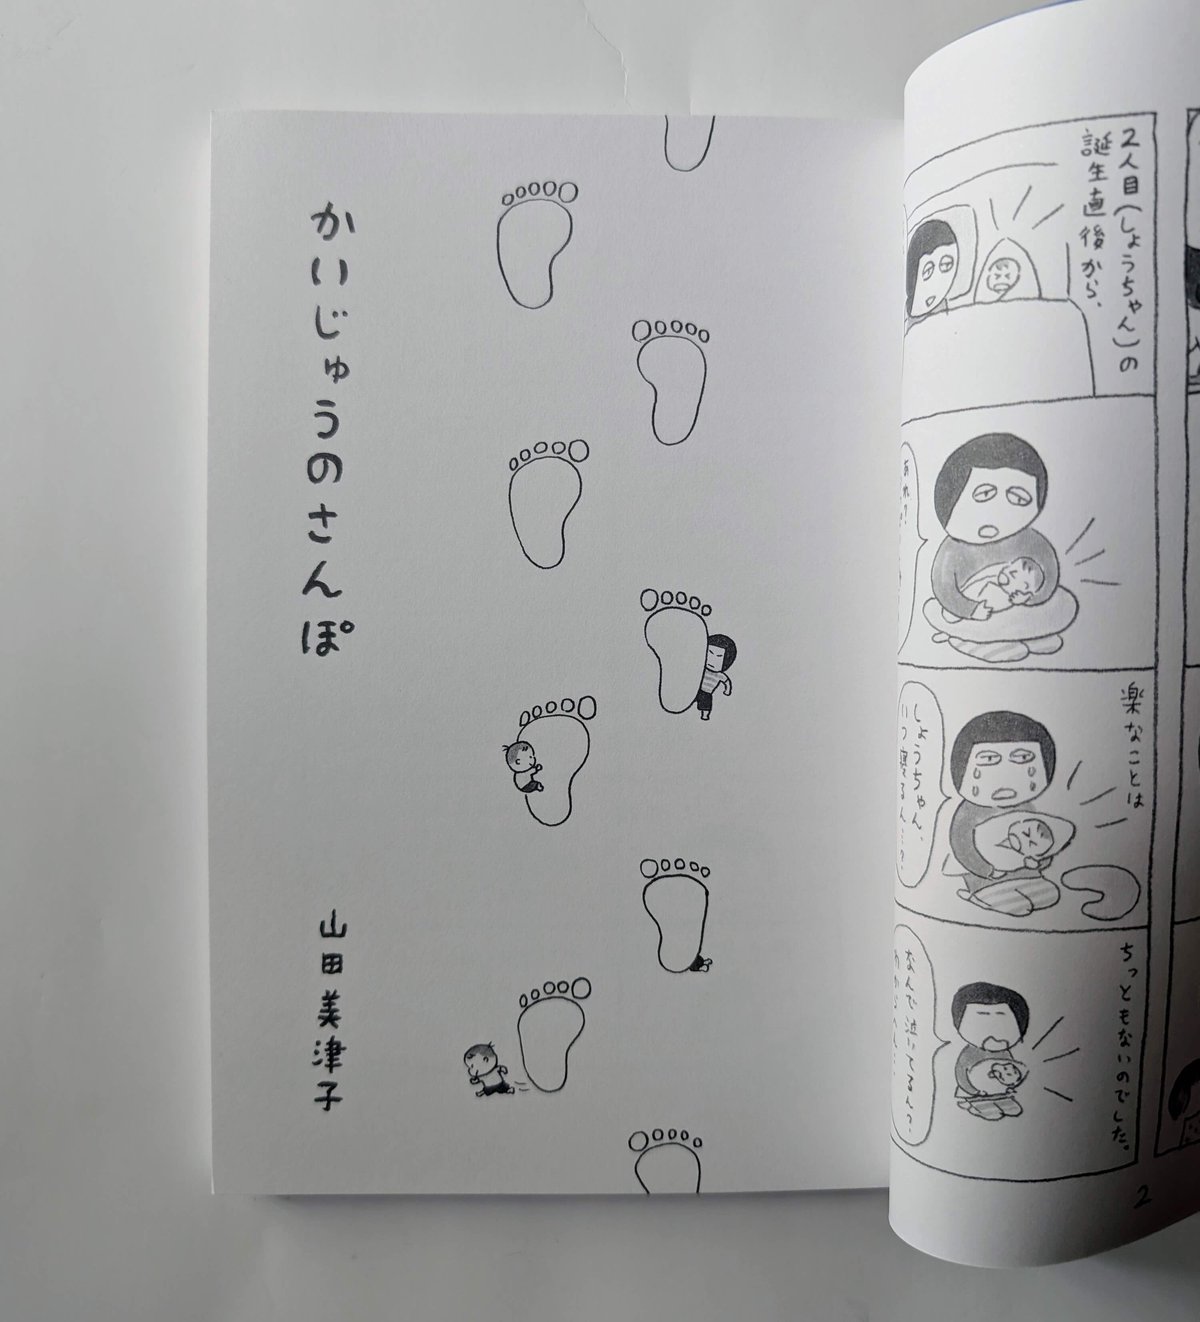 かいじゅうのさんぽ
山田美津子
2人目(しょうちゃん)の
誕生直後から、
あれ?
楽なことは
しょうちゃん、
いつ寝るん…?
ちっともないのでした。
なんで泣いてるん?
わからへん…
2